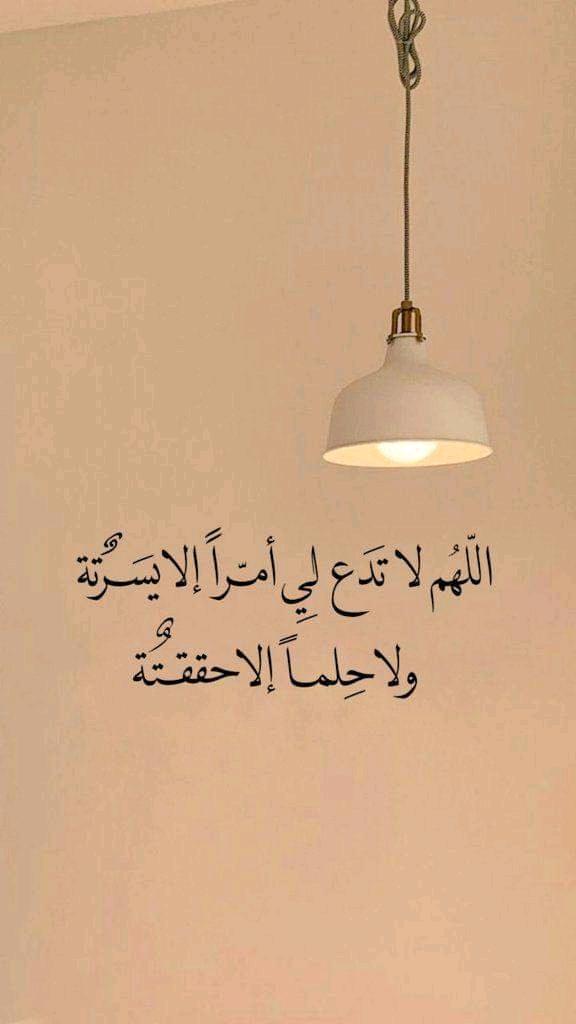 اللّهُم لا تَدَع لِي أمـّراً إلا يسَـرٌتة
ولا حِلمـاً إلا حققـتٌة